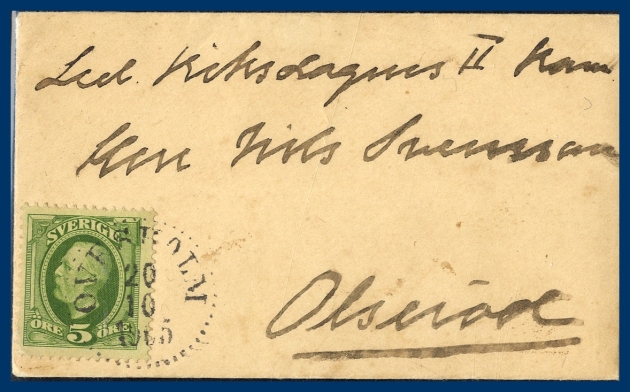 Led. Riksdagens II Kam
Herr Nils Svensson
Olseröd
SVERIGE
ÖRE 5 ÖRE
20
10